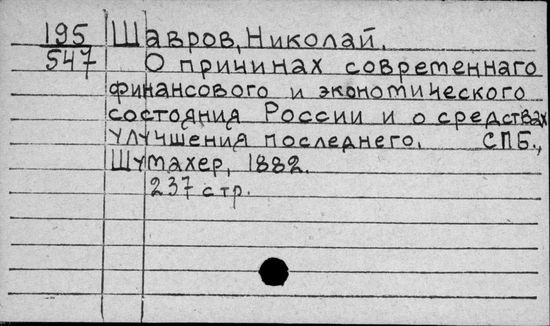 195 Шавров, Николай.
547 О причинах современнаго
финансового и экономического
состояния России и о средствах
улучшения последнего. СПБ.,
Шумахер, 1882.
237 стр.